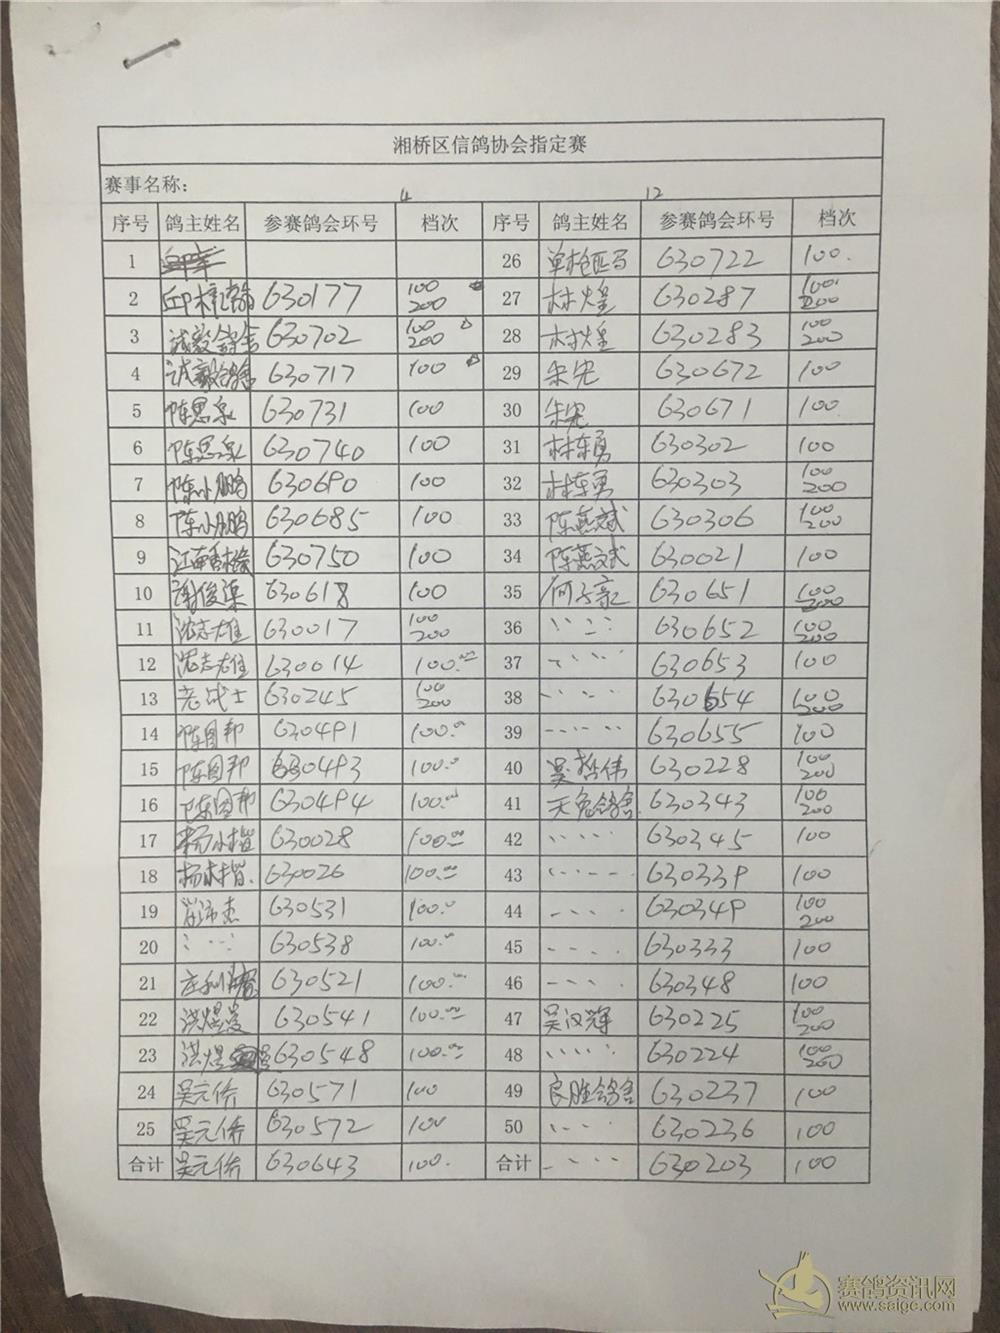 湘桥区信鸽协会指定赛
赛事名称：
4 12
序号 鸽主姓名 参赛鸽会环号 档次 序号 鸽主姓名 参赛鸽会环号 档次
1 26 单枪匹马 630722 100.
2 邱梓瀚 630177 100 200 27 林煌 630287 100 200
3 诚毅鸽舍 630702 100 200 28 林煌 630283 100 200
4 诚毅鸽舍 630717 100 29 朱宪 630672 100
5 陈思泉 630731 100 30 朱宪 630671 100
6 陈思泉 630740 100 31 林东勇 630302 100
7 陈小鹏 630690 100 32 林东勇 630303 100 200
8 陈小鹏 630685 100 33 陈燕斌 630306 100 200
9 江南 630750 100 34 陈燕斌 630021 100
10 谢俊 630618 100 35 何子豪 630651 100 200
11 沈志雄 630017 100 200 36 〃 630652 100 200
12 沈志雄 630014 100.00 37 〃 630653 100
13 老战士 630245 100 200 38 〃 630654 100 200
14 陈国邦 630491 100.00 39 〃 630655 100
15 陈国邦 630493 100.00 40 吴哲伟 630228 100 200
16 陈国邦 630494 100.00 41 天兔鸽舍 630343 100 200
17 杨木楷 630028 100.00 42 〃 630345 100
18 杨木楷 630026 100.00 43 〃 630339 100
19 630531 100.0 44 〃 630349 100 200
20 〃 630538 100.00 45 〃 630333 100
21 庄 630521 100.00 46 〃 630348 100
22 洪煜 630541 100.00 47 吴汉辉 630225 100 200
23 洪煜 630548 100.00 48 〃 630224 100 200
24 吴元侨 630571 100 49 良胜鸽舍 630237 100
25 吴元侨 630572 100 50 〃 630236 100
合计 吴元侨 630643 100. 合计 〃 630203 100
赛鸽资讯网
www.saigc.com